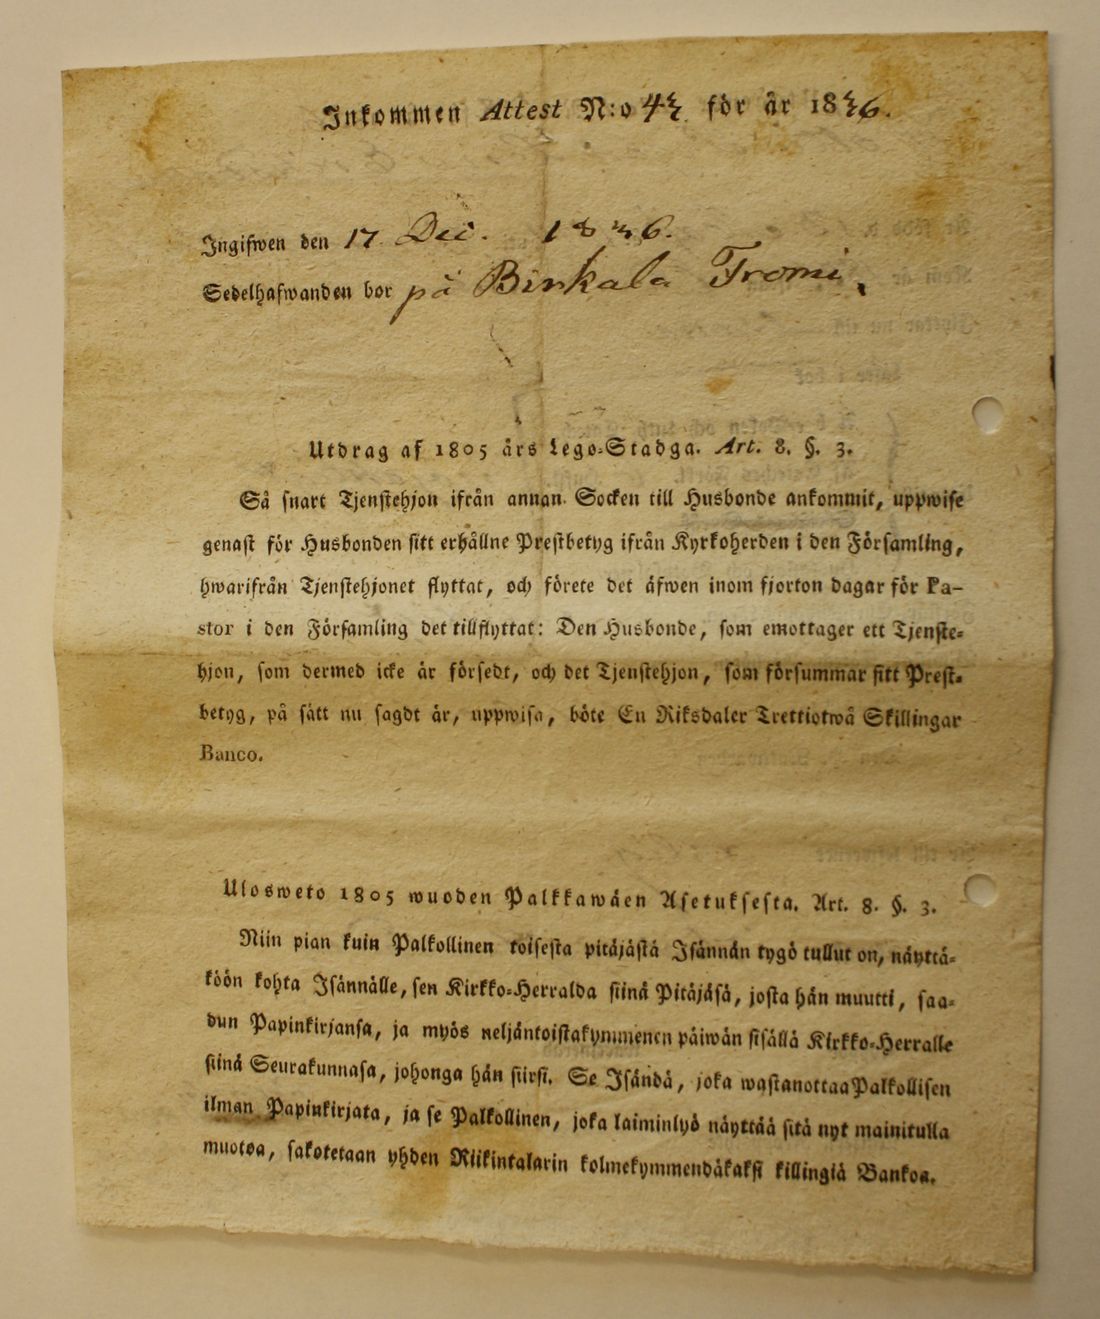 Inkommen Attest N:o 43 för år 1836.
Ingifwen den 17 Dec. 1836.
Sedelhafwanden bor på Birkala Fromi,
Utdrag af 1805 års Lego-Stadga. Art. 8. §. 3.
Så snart Tjenstehjon ifrån annan Socken till Husbonde ankommit, uppwise
genast för Husbonden sitt erhållne Prestbetyg ifrån Kyrkoherden i den Församling,
hwarifrån Tjenstehjonet flyttat, och förete det äfwen inom fjorton dagar för Pa-
stor i den Församling det tillflyttat: Den Husbonde, som emottager ett Tjenste-
hjon, som dermed icke är försedt, och det Tjenstehjon, som försummar sitt Prest-
betyg, på sätt nu sagdt är, uppwisa, böte En Riksdaler Trettiotwå Skillingar
Banco.
Ulosweto 1805 wuoden Palkkawäen Asetuksesta. Art. 8. §. 3.
Niin pian kuin Palkollinen toisesta pitäjästä Isännän tygö tullut on, näyttä-
köön kohta Isännälle, sen Kirkko-Herralda siinä Pitäjäsä, josta hän muutti, saa-
dun Papinkirjansa, ja myös neljäntoistakymmenen päiwän sisällä Kirkko-Herralle
siinä Seurakunnasa, johonga hän siirsi. Se Isändä, joka wastanottaa Palkollisen
ilman Papinkirjata, ja se Palkollinen, joka laiminlyö näyttää sitä nyt mainitulla
muotoa, sakotetaan yhden Riikintalarin kolmekymmendäkaksi killingiä Bankoa.